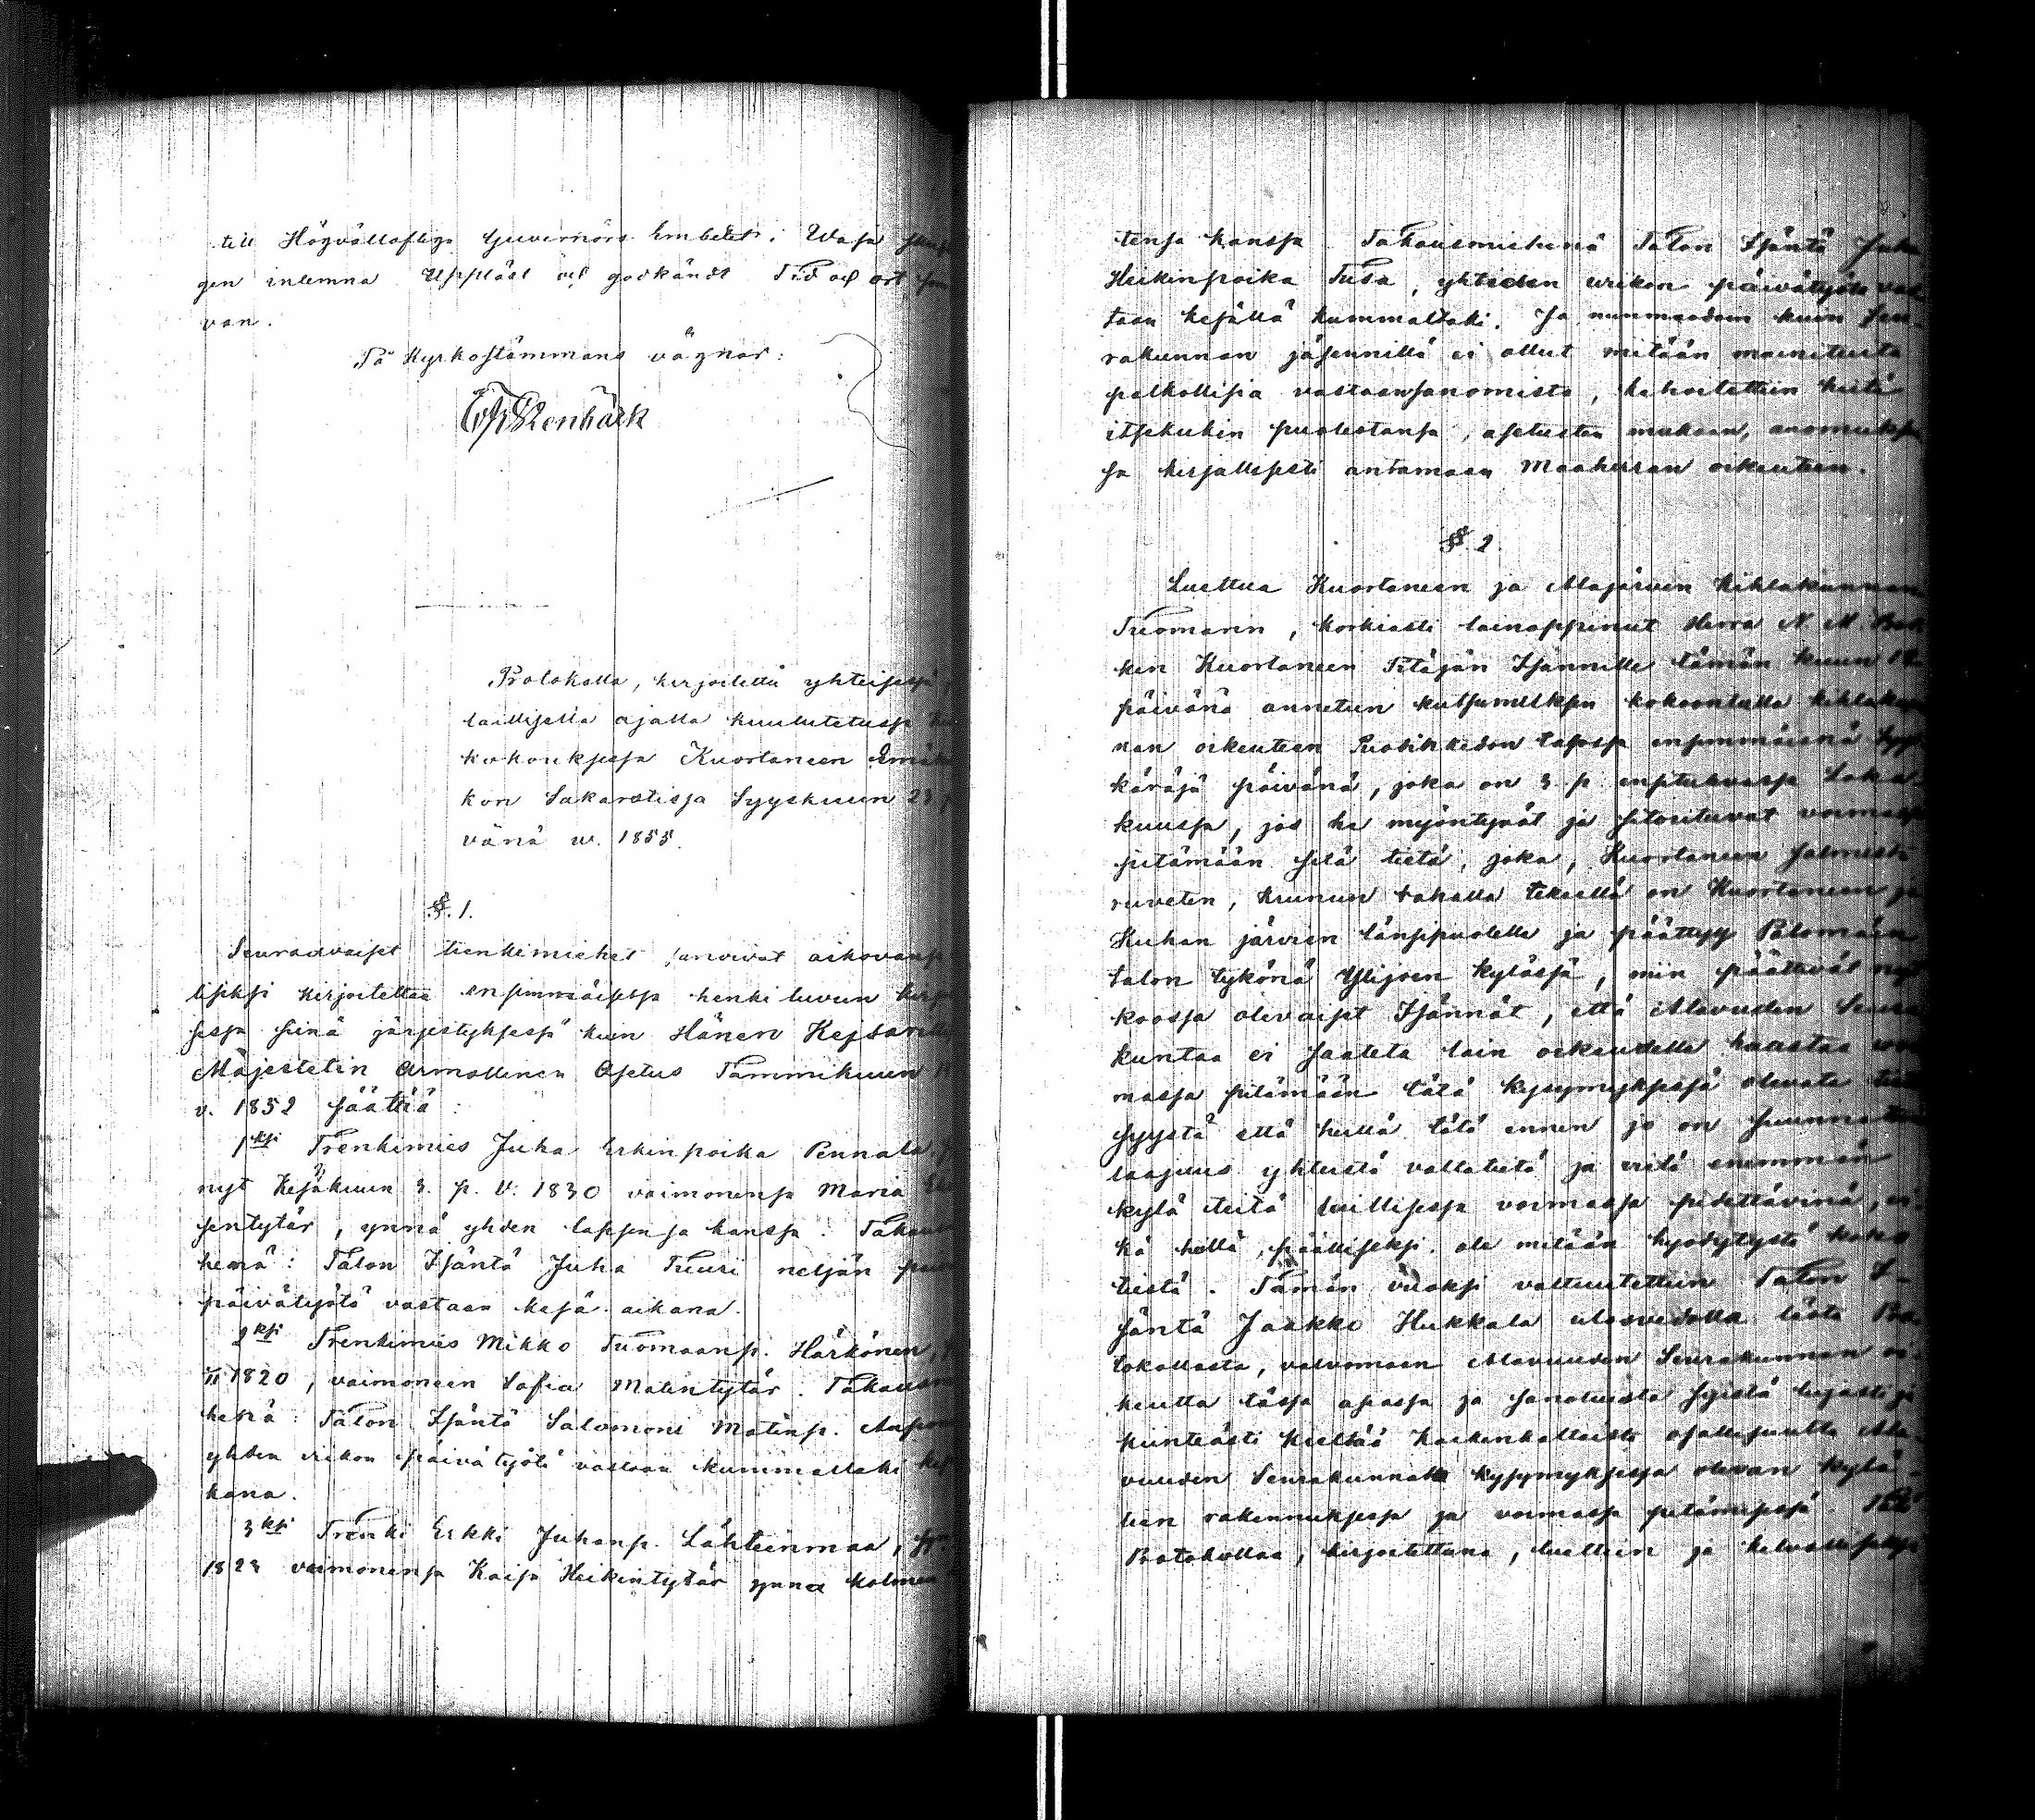 till Högvällofliga Guvernörs Embetet i Wasa
gen inlemna Upplast och godkändt Tid och ort som
van.
På Kyrkostämmans vägnar:
Stenbäck
Protokolla, kirjoitettu yhteisessä
laillisella ajalla kuulutetussa
kokouksessa Kuortaneen Emäkir
kon Sakarstisa Syyskuun 23 p
vänä w. 1855.
§. 1.
Seuraavaiset trenkimiehet sanoivat aikovansa
kirjoitettaa ensimmäisessä henki luvun kirjo
sessa siinä järjestyksessä kuin Hänen Keisarilli
Majestetin Armollinen Asetus Tammikuun
v. 1852 säättää:
1ksi Trenkimies Juha Erkinpoika Pennala
nyt Kesäkuun 3. p. v. 1830 vaimonensa Maria
sentytär, ynnä yhden lapsensa kanssa. Takaus
henä: Talon Isäntä Juha Tuuri neljän
päivätyötä vastaan kesä aikana.
2ksi Trenkimies Mikko Tuomaanp. Härkönen,
1820, vaimoneen Sofia Matintytär. Takausm
henä: Talon Isäntä Salomoni Matinp.
yhden viikon päivätyötä vastaan kummallaki kes
kana.
3ksi Trenki Erkki Juhanp. Lähteinmaa, sy.
1823 vaimonensa Kaisa Heikintytär ynnä kolmen
tensa kanssa. Takausmiehenä Talon Isäntä Juha
Heikinpoika Tusa, yhteiden viikon päivätyötä vas
taan kesällä kummaltaki. Ja nunmuodoin kuin Seu-
rakunnan jäsennillä ei ollut mitään mainituita
palkollisia vastaansanomista, kehoitettiin heitä
itsekukin puolestansa, asetusten mukaan, anomuksen
sa kirjallisesti antamaan Maaherran oikeuteen.
§. 2.
Luettua Kuortaneen ja Alajärven Kihlakunnan
Tuomarin, korkiasti lainoppinut Herra N. M.
ken Kuortaneen Pitäjän Isännille tämän kuun
päivänä annetun kutsumuksen kokoontulla kihlakun
nan oikeuteen Ruotihkedon talossa ensimmäisnä Syys
käräjä päivänä, joka on 3 p. ensitulevassa Loka-
kuussa, jos he myöntyvät ja sitoutuvat voimassa
pitämään sitä tietä, joka, Kuortaneen Salmesta
ruveten, kruunun rahalla tekeellä on Kuortaneen ja
Kuhan järvien länsipuolella ja päättyy Palomäen
talon tykönä Ylijoen kylässä, niin päättivät nyt
koossa olevaiset Isännät, että Alavuden Seura
kuntaa ei saateta lain oikeudella haastaa voi
massa pitämään tätä kysymyksessä olevata tietä
syystä että heillä tätä ennen jo on suunnattu
laajuus yhteistä vallatietä ja vielä enemmän
kylä teitä laillisessa voimassa pidettävinä, ei
kä heillä, päälliseksi, ole mitään hyödytystä koko
tiestä. Tämän vuoksi valtuutettiin Talon I-
säntä Jaakko Hukkala ulosvedolla tästä Pro-
tokollasta, valvomaan Alavuuden Seurakunnan oi-
keutta tässä asiassa ja sanotuista syistä lujasti ja
punteästi kieltää kaikenkaltaista osallisuutta Ala-
vuuden Seurakunnalta kysymyksessä olevan kylä-
tien rakennuksessa ja voimassa pitämisessä. Tätä
Protokollaa, kirjoitettuna, luettiin ja kelvolliseksi